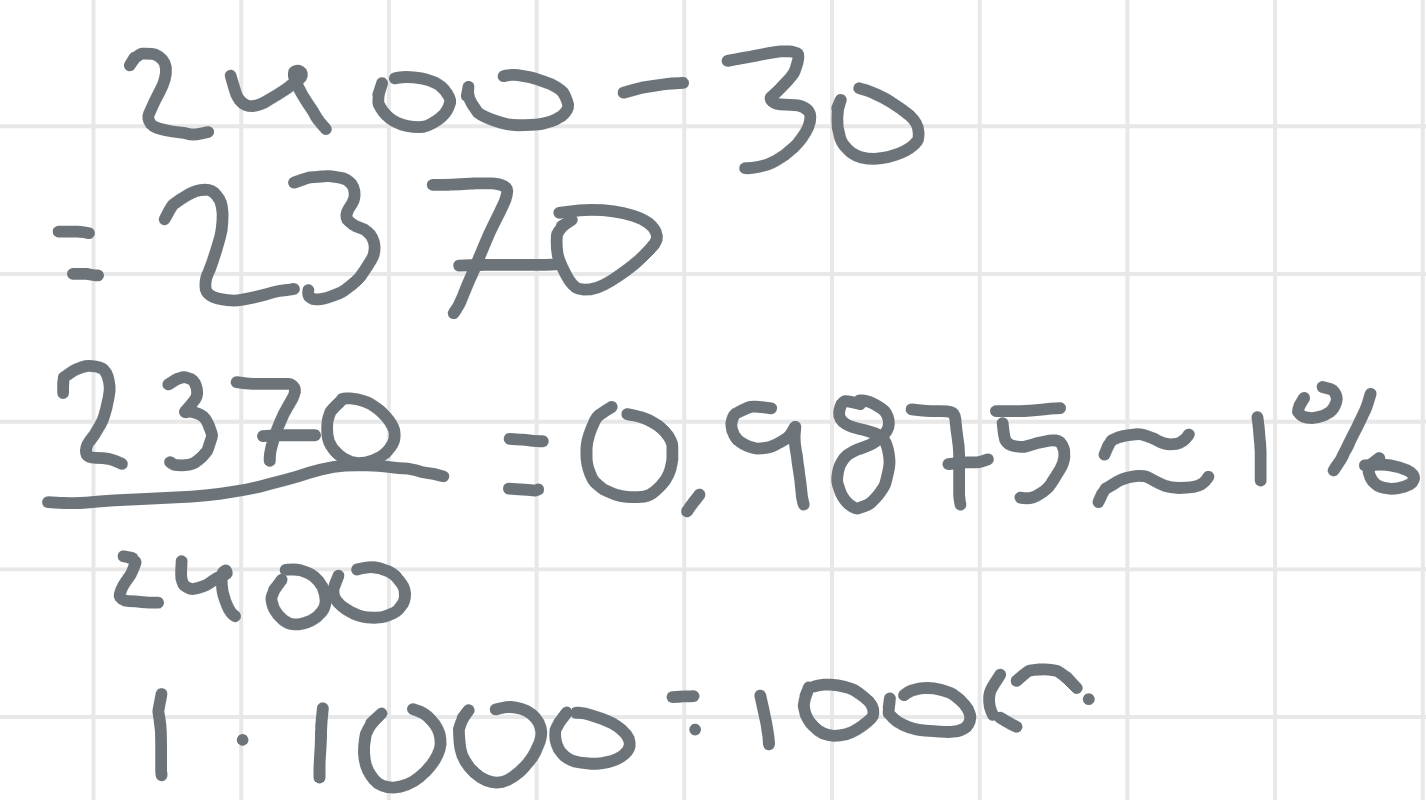 2400 - 30
= 2370
2370/2400 = 0,9875 ≈ 1%
1 · 1000 = 1000